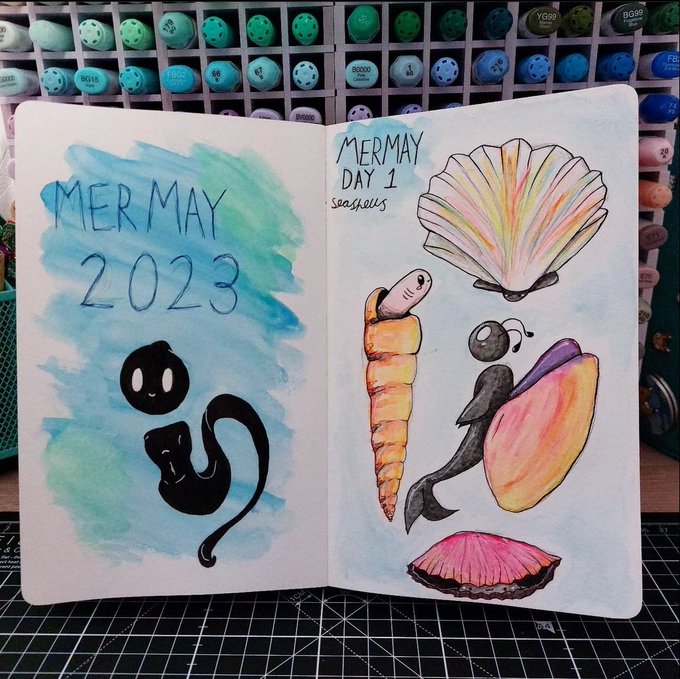 BG99
YG99
B0000
BG15
FB2
66
67
B0000
BV0000
MERMAY
2023
MERMAY
DAY 1
seashells
A4